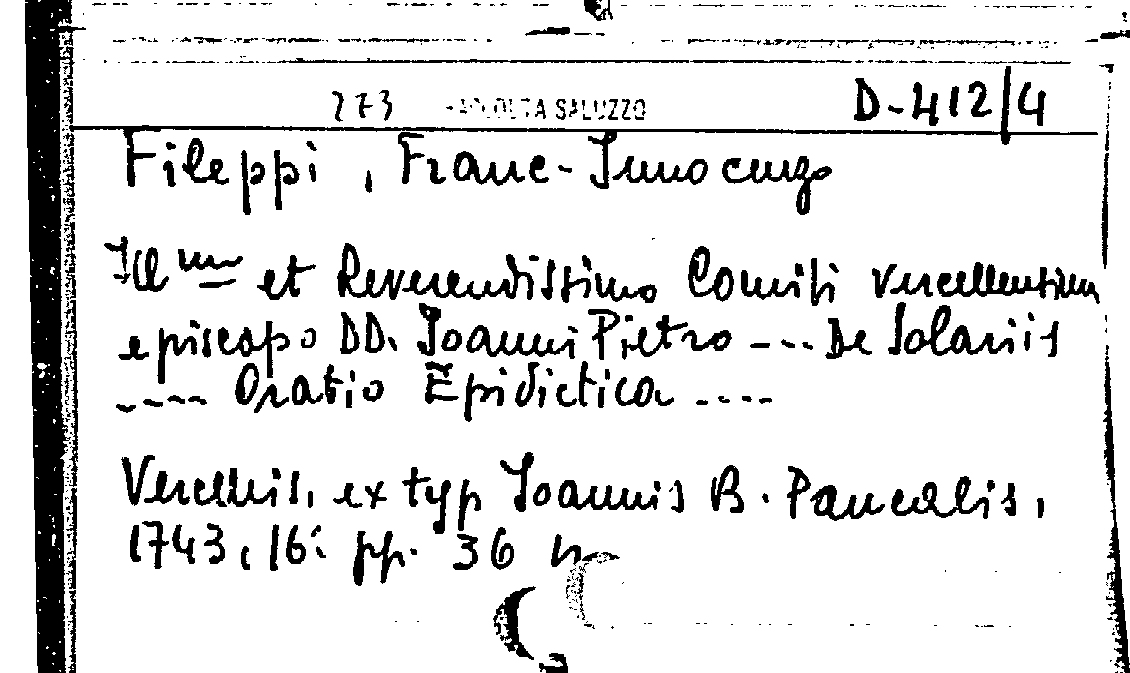 273 RACCOLTA SALUZZO D-412/4
Fileppi, Franc-Innocenzo
Ill.mo et Reverendissimo Comiti Vercellentium
episcopo DD. Joanni Pietro --- De Solariis
---- Oratio Epidictica ----
Vercellis, ex typ Joannis B. Pancalis,
1743, 16: pp. 36 n